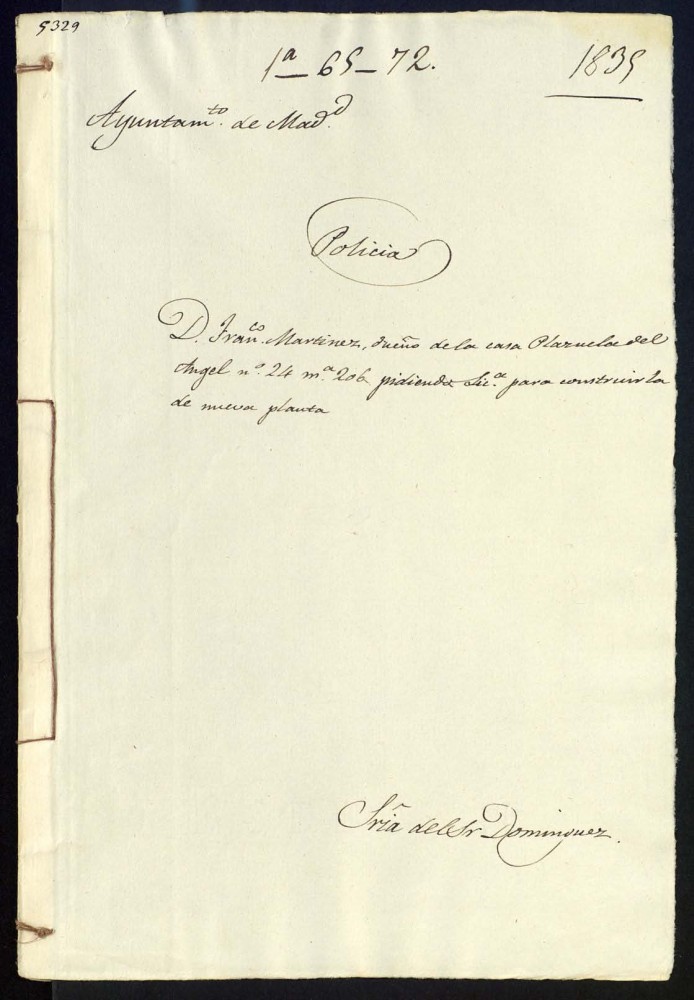 5329
1ª - 65 - 72.
1835
Ayuntamto. de Madd.
Policia
D. Franco. Martinez, dueño de la casa Plazuela del
Angel nº. 24 mª. 206 pidiendo Lica. para construirla
de nueva planta
Sria del Sr Dominguez.